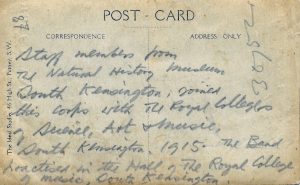 POST - CARD
CORRESPONDENCE
ADDRESS ONLY
The Ideal Studio, 46 High St., Putney, S.W.
Staff members from
The Natural History Museum
South Kensington, joined
this Corps with The Royal Colleges
of Science, Art & Music,
South Kensington. 1915. The Band
practised in the Hall of The Royal College
of Music, South Kensington.